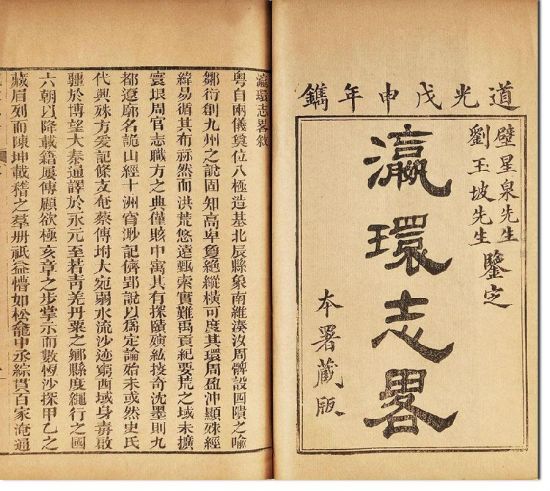 道光戊申年鐫
壁星泉先生
劉玉坡先生
鑒定
瀛環志畧
本署藏版
瀛環志畧敘
粵自兩儀奠位八極造基北辰縣象南維湊汐周髀設四隤之喻
鄒衍創九州之說固知高卑敻絕縱橫可度其環周盈沖顯殊經
緯易循其布赫然而洪荒悠邈甄索實難禹貢紀要荒之域未擴
寰垠周官志職方之典僅賅中寓其有探賾紘技奇沈墨則九
都遼廓名詭山經十洲窅渺記儕郢說以爲定論始未或然史氏
代興殊方爰記條支奄蔡傳坿大宛弱水流沙迹窮西域身毒啟
疆於博望大秦通譯於永元至若青羌丹粟之鄉縣度繩行之國
六朝以降載籍屢傳顧欲極亥章之步掌示而數恆沙探甲乙之
藏眉列而陳坤載稽之羣冊祇益懵如松龕中丞綜貫百家淹通